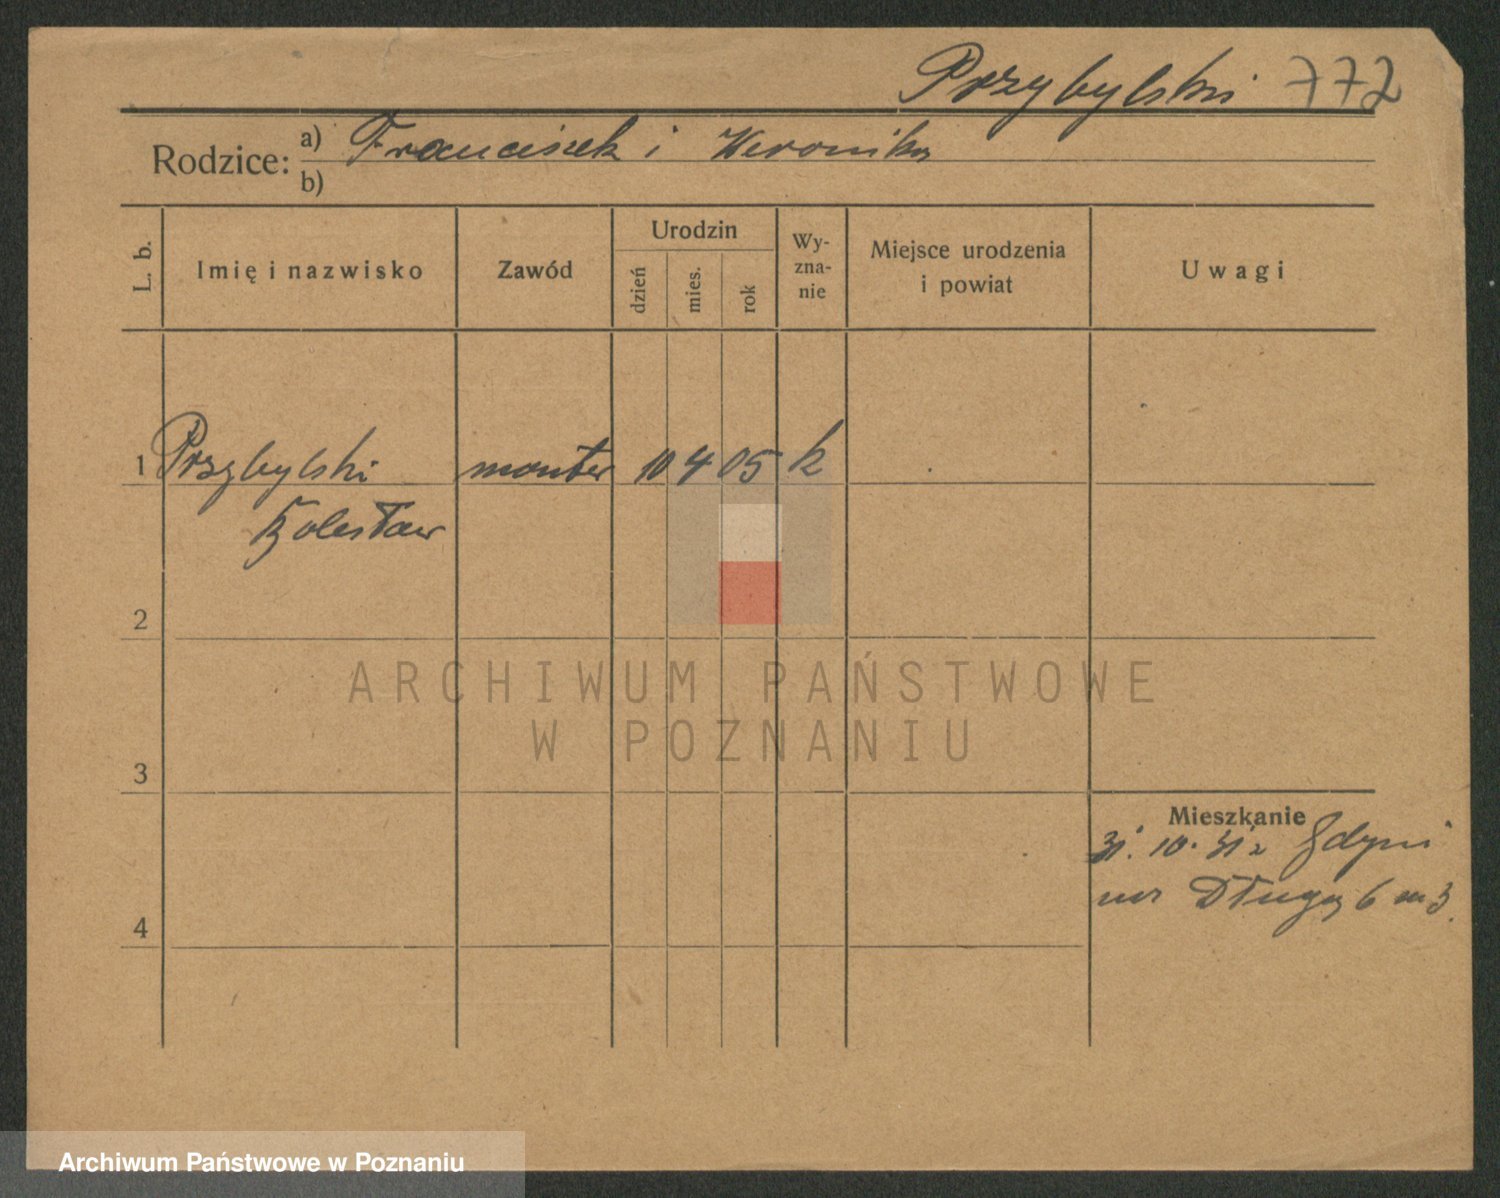 Przybylski 772
Rodzice: a) Franciszek i Weronika
b)
L. b.
Imię i nazwisko
Zawód
Urodzin
dzień
mies.
rok
Wy-
zna-
nie
Miejsce urodzenia
i powiat
Uwagi
1 Przybylski monter 10 4 05 k
Bolesław
2
ARCHIWUM PAŃSTWOWE
W POZNANIU
3
Mieszkanie
31. 10. 31 z Gdyni
Długa 6 m 3.
4
Archiwum Państwowe w Poznaniu